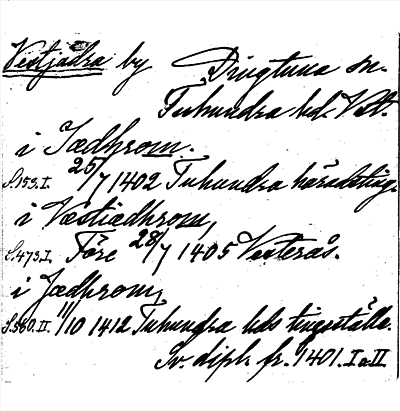 Västjädra by Dingtuna sn.
Tuhundra hd. Vstl.
i Jædhrom.
S.153.I. 25/7 1402 Tuhundra häradsting.
i Væstiædhrom,
S.473.I. Före 28/7 1405 Västerås.
i Jædhrom,
S.380.II. 11/10 1412 Tuhundra hds tingsställe.
Sv. dipl. fr. 1401. I o II